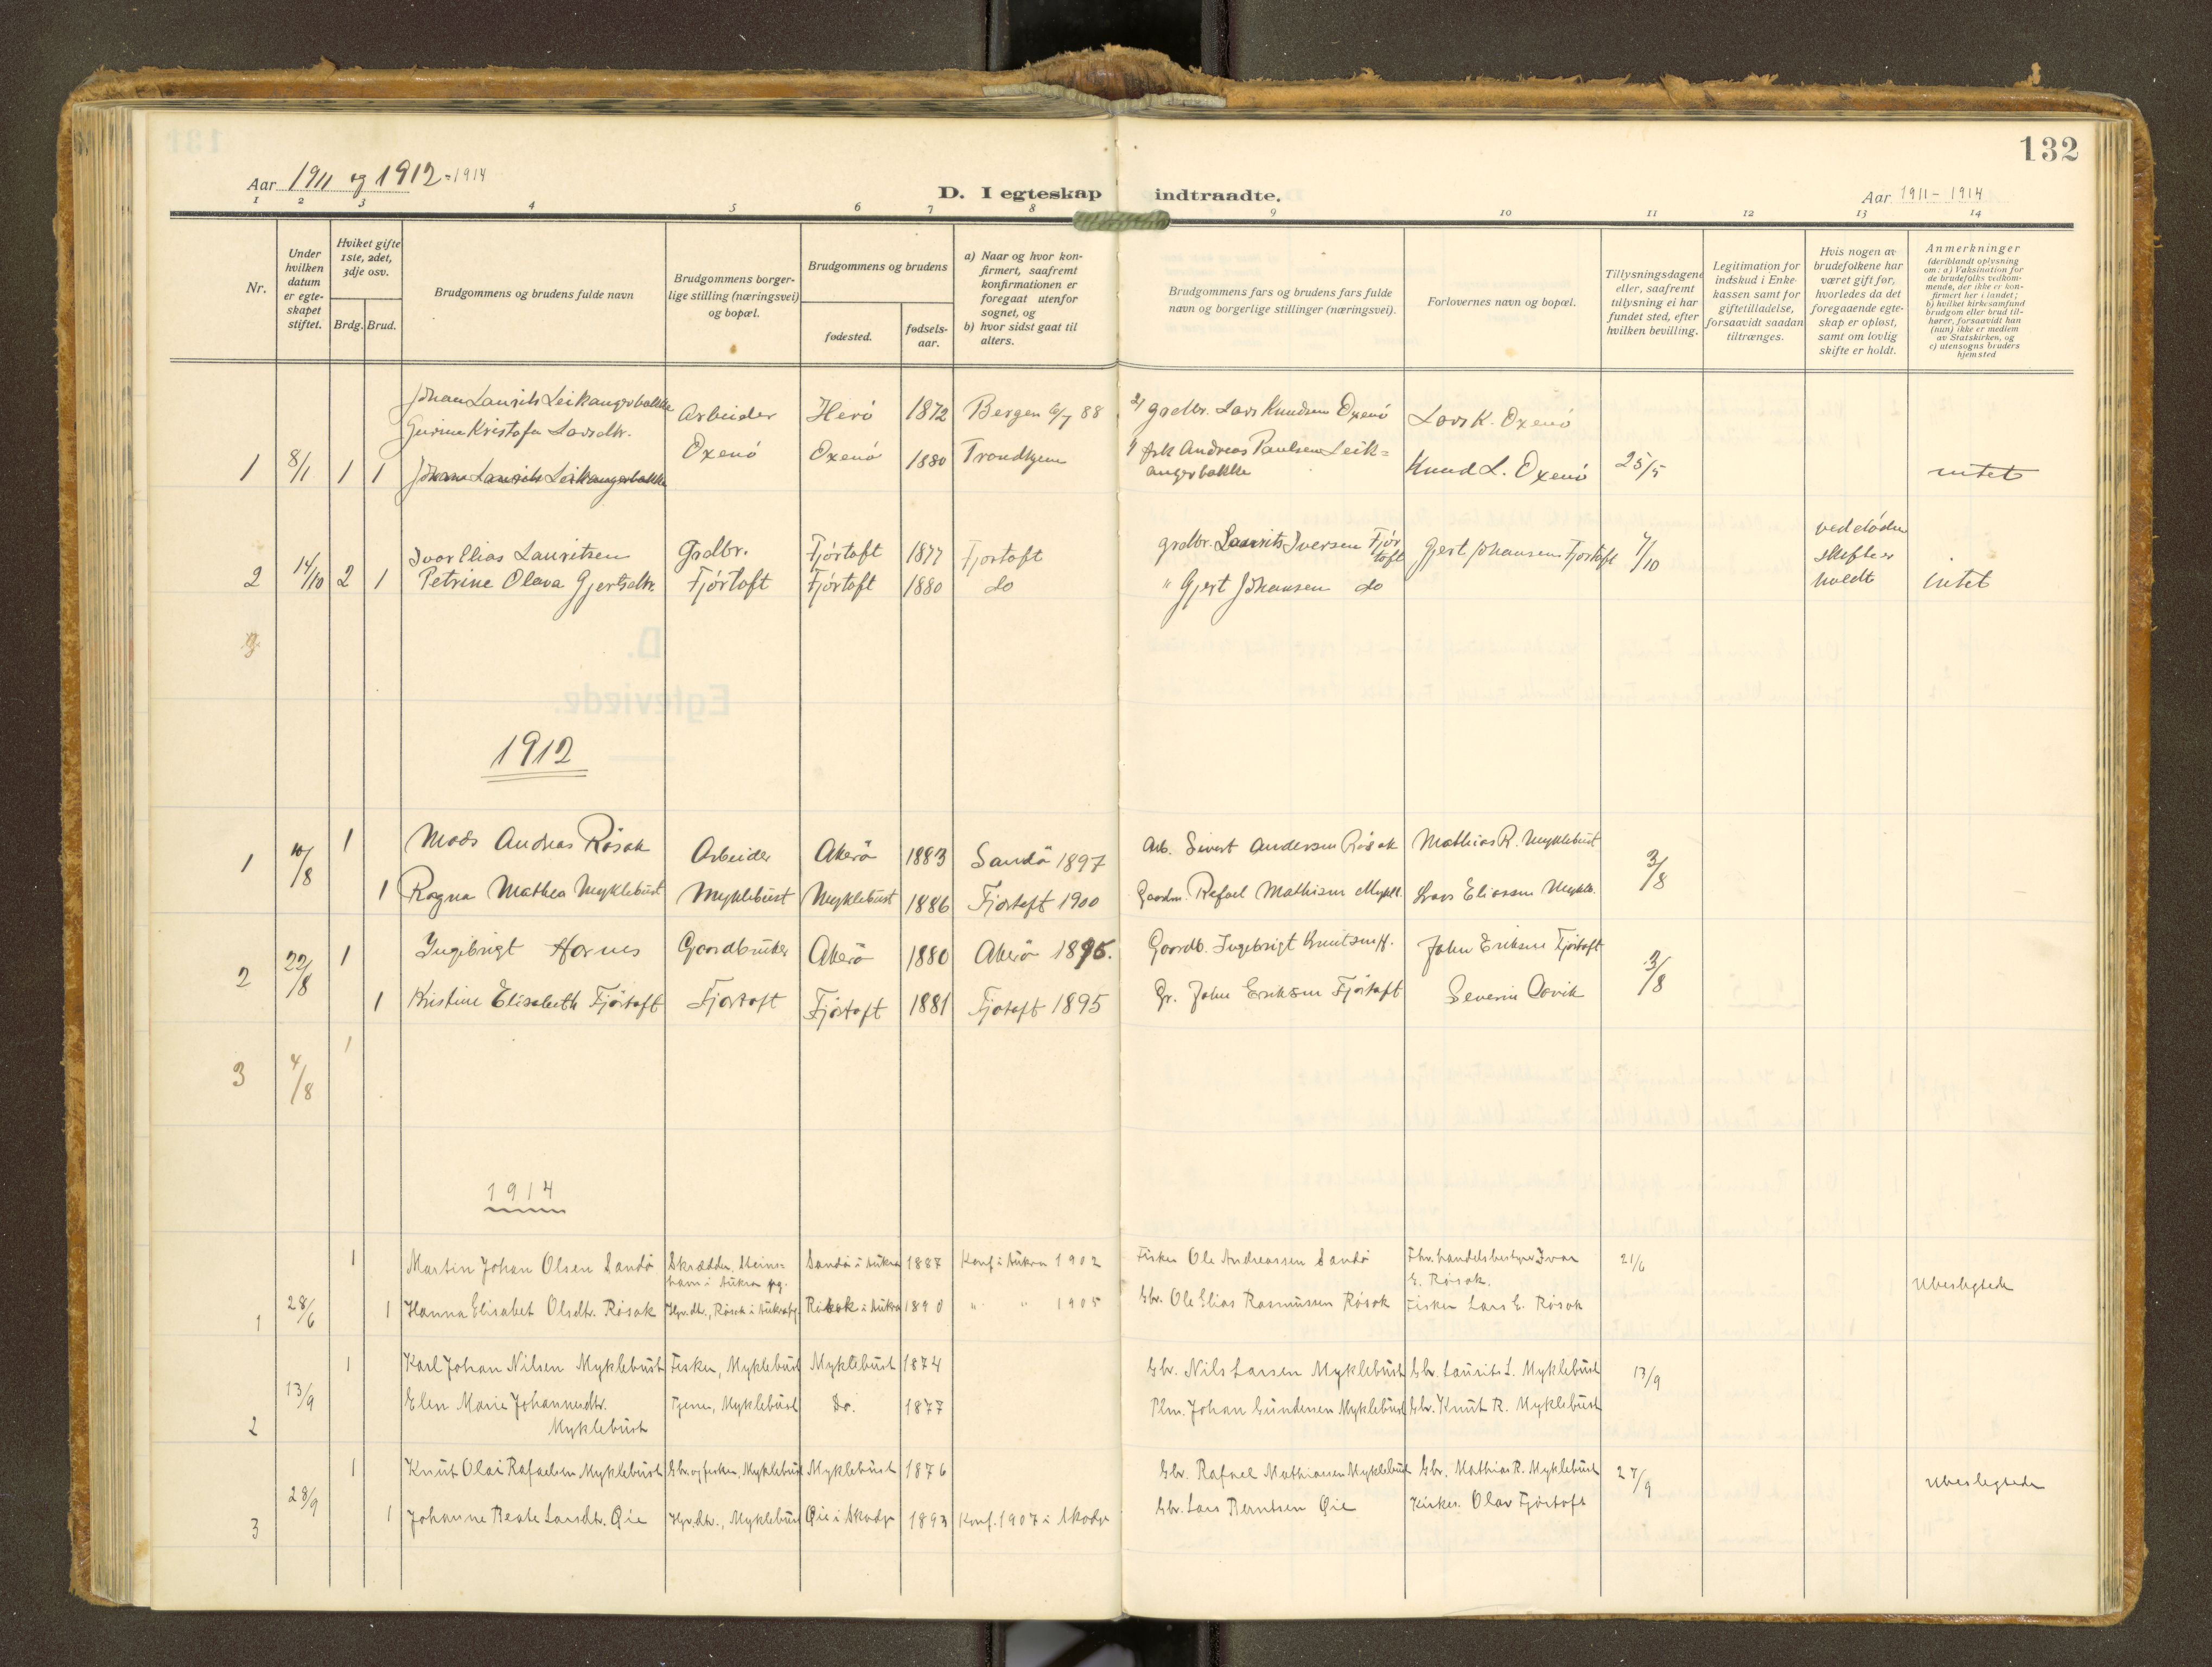 132
Aar 1911 og 1912 - 1914
D. I egteskap indtraadte.
Aar 1911 - 1914
1 2 3 4 5 6 7 8 9 10 11 12 13 14
Nr.
Under hvilken datum er egteskapet stiftet.
Hviket gifte 1ste, 2det, 3dje osv.
Brdg. Brud.
Brudgommens og brudens fulde navn
Brudgommens borgerlige stilling (næringsvei) og bopæl.
Brudgommens og brudens
fødested.
fødselsaar.
a) Naar og hvor konfirmert, saafremt konfirmationen er foregaat utenfor sognet, og
b) hvor sidst gaat til alters.
Brudgommens fars og brudens fars fulde navn og borgerlige stillinger (næringsvei).
Forlovernes navn og bopæl.
Tillysningsdagene eller, saafremt tillysning ei har fundet sted, efter hvilken bevilling.
Legitimation for indskud i Enkekassen samt for giftetilladelse, forsaavidt saadan tiltrænges.
Hvis nogen av brudefolkene har været gift før, hvorledes da det foregaaende egteskap er opløst, samt om lovlig skifte er holdt.
Anmerkninger (deriblandt oplysning om: a) Vaksination for de brudefolks vedkommende, der ikke er konfirmert her i landet; b) hvilket kirkesamfund brudgom eller brud tilhører, forsaavidt han (hun) ikke er medlem av Statskirken, og c) utensogns bruders hjemsted
Johan Laurits Leikangerbakke Arbeider Herö 1872 Bergen 6/7 88 2) grdbr. Lars Knudsen Oxenö Lars K. Oxenö
Gurine Kristofa Larsdtr. Oxenö Oxenö 1880 Trondhjem 1) fsk Andreas Paulsen Leikangerbakke Knud L. Oxenö 25/5
1 8/1 1 1 Johan Laurits Leikangerbakke intet
Ivar Elias Lauritsen Grdbr. Fjörtoft 1877 Fjortoft grdbr. Laurits Iversen Fjörtoft Gjert Johansen Fjortoft 7/10 ved döden skifte er holdt
2 14/10 2 1 Petrine Olava Gjertsdtr. Fjörtoft Fjörtoft 1880 do " Gjert Johansen do intet
1912
1 10/8 1 Mads Andreas Rösok Arbeider Akerö 1883 Sandö 1897 Arb. Sivert Andersen Rösok Mathias R. Myklebust 3/8
1 Ragna Mathea Myklebust Myklebust Myklebust 1886 Fjortoft 1900 Gaardm. Rafael Mathisen Mykl. Lars Eliassen Mykle.
2 22/8 1 Ingebrigt Hornes Gaardbruker Akerö 1880 Akerö 1895. Gaardb. Ingebrigt Knutsen H. John Eriksen Fjörtoft 3/8
1 Kristine Elisabeth Fjörtoft Fjortoft Fjörtoft 1881 Fjotoft 1895 Gr. John Eriksen Fjörtoft Severin
3 4/8 1
1914
1 Martin Johan Olsen Sandö Skrædder, Steinshavn i Aukra pg. Sandö i Aukra 1887 Konf. i Aukra 1902 Fisker Ole Andreassen Sandö Fhv. handelsbestyrer Ivar E. Rösok. 21/6
1 28/6 1 Hanna Elisabet Olsdtr. Rösok Hpr.dtr., Rösok i Aukra pg. Rösok i Aukra 1890 " " 1905 Gbr. Ole Elias Rasmussen Rösok Fisker Lars E. Rösok Ubeslegtede
1 Karl Johan Nilsen Myklebust Fisker, Myklebust Myklebust 1874 Gbr. Nils Larsen Myklebust Gbr. Laurits L. Myklebust 13/9
2 13/9 Elen Marie Johannesdtr. Myklebust Tjener, Myklebust Do. 1877 Plm. Johan Gundersen Myklebust Gbr. Knut R. Myklebust
1 Knut Olai Rafaelsen Myklebust Gbr. og fisker, Myklebust Myklebust 1876 Gbr. Rafael Mathiassen Myklebust Gbr. Mathias R. Myklebust 27/9 Ubeslegtede
3 28/9 1 Johanne Beate Larsdtr. Øie Hpr.dtr., Myklebust Øie i Skodje 1893 Konf. 1907 i Skodje Gbr. Lars Berntsen Øie Kirkes. Olav Fjörtoft